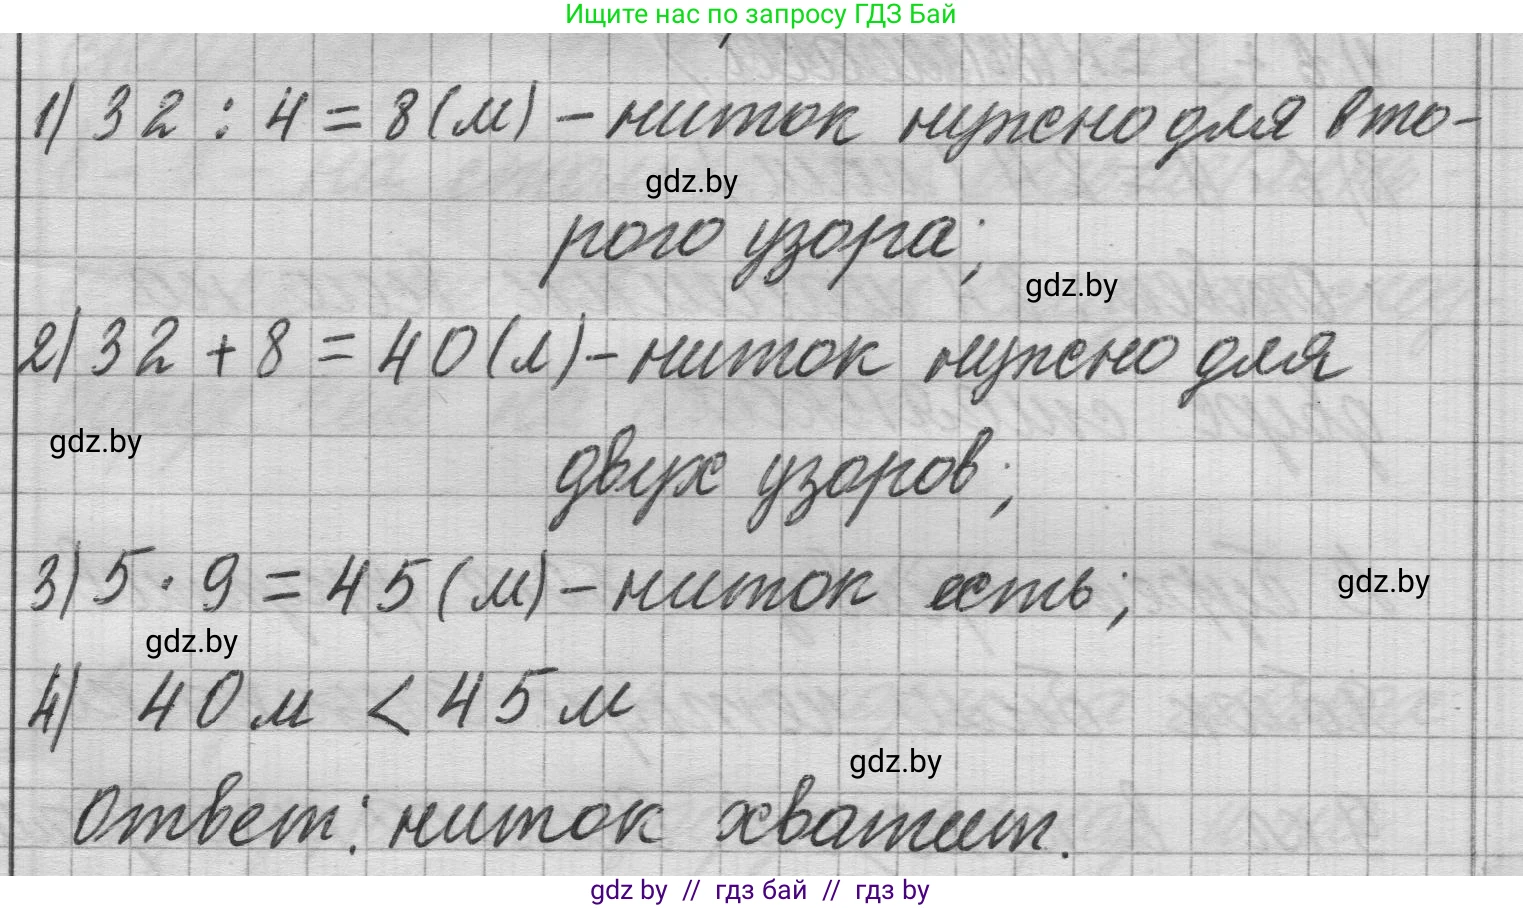 Ищите нас по запросу ГДЗ Бай
1) 32 : 4 = 8 (м) – ниток нужно для вто-
gdz.by
рого узора;
gdz.by
2) 32 + 8 = 40 (м) – ниток нужно для
gdz.by
двух узоров;
3) 5 · 9 = 45 (м) – ниток есть;
gdz.by
gdz.by
4) 40 м < 45 м
gdz.by
Ответ: ниток хватит.
gdz by // гдз бай // гдз by